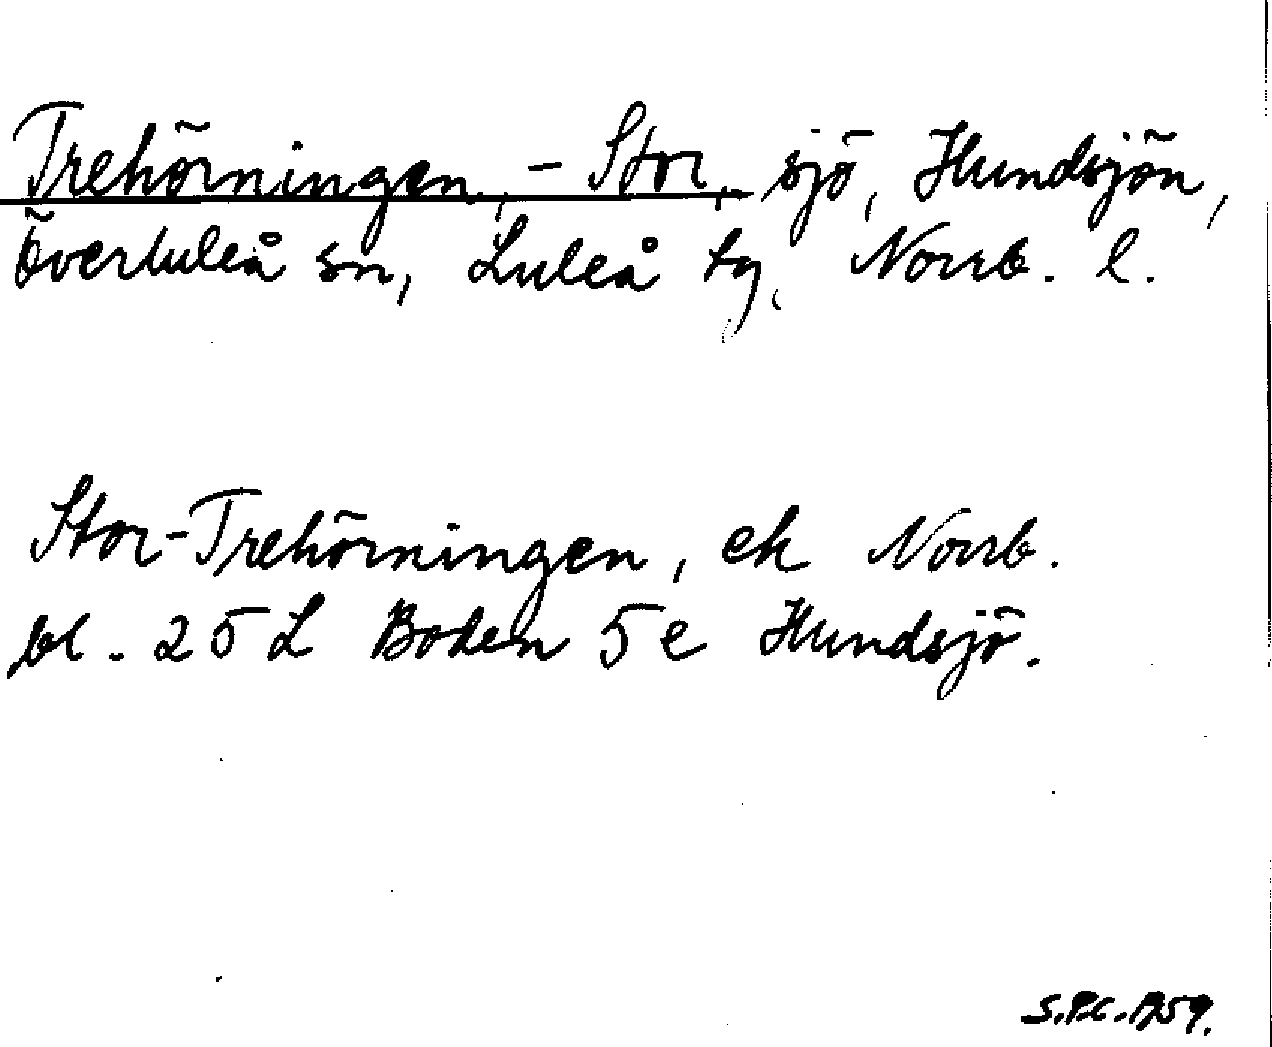 Trehörningen, - Stor-, sjö, Hundsjön,
Överluleå sn, Luleå tg, Norrb. l.
Stor-Trehörningen, ek Norrb.
bl. 25 L Boden 5 e Hundsjö.
S.P.C. 1959.